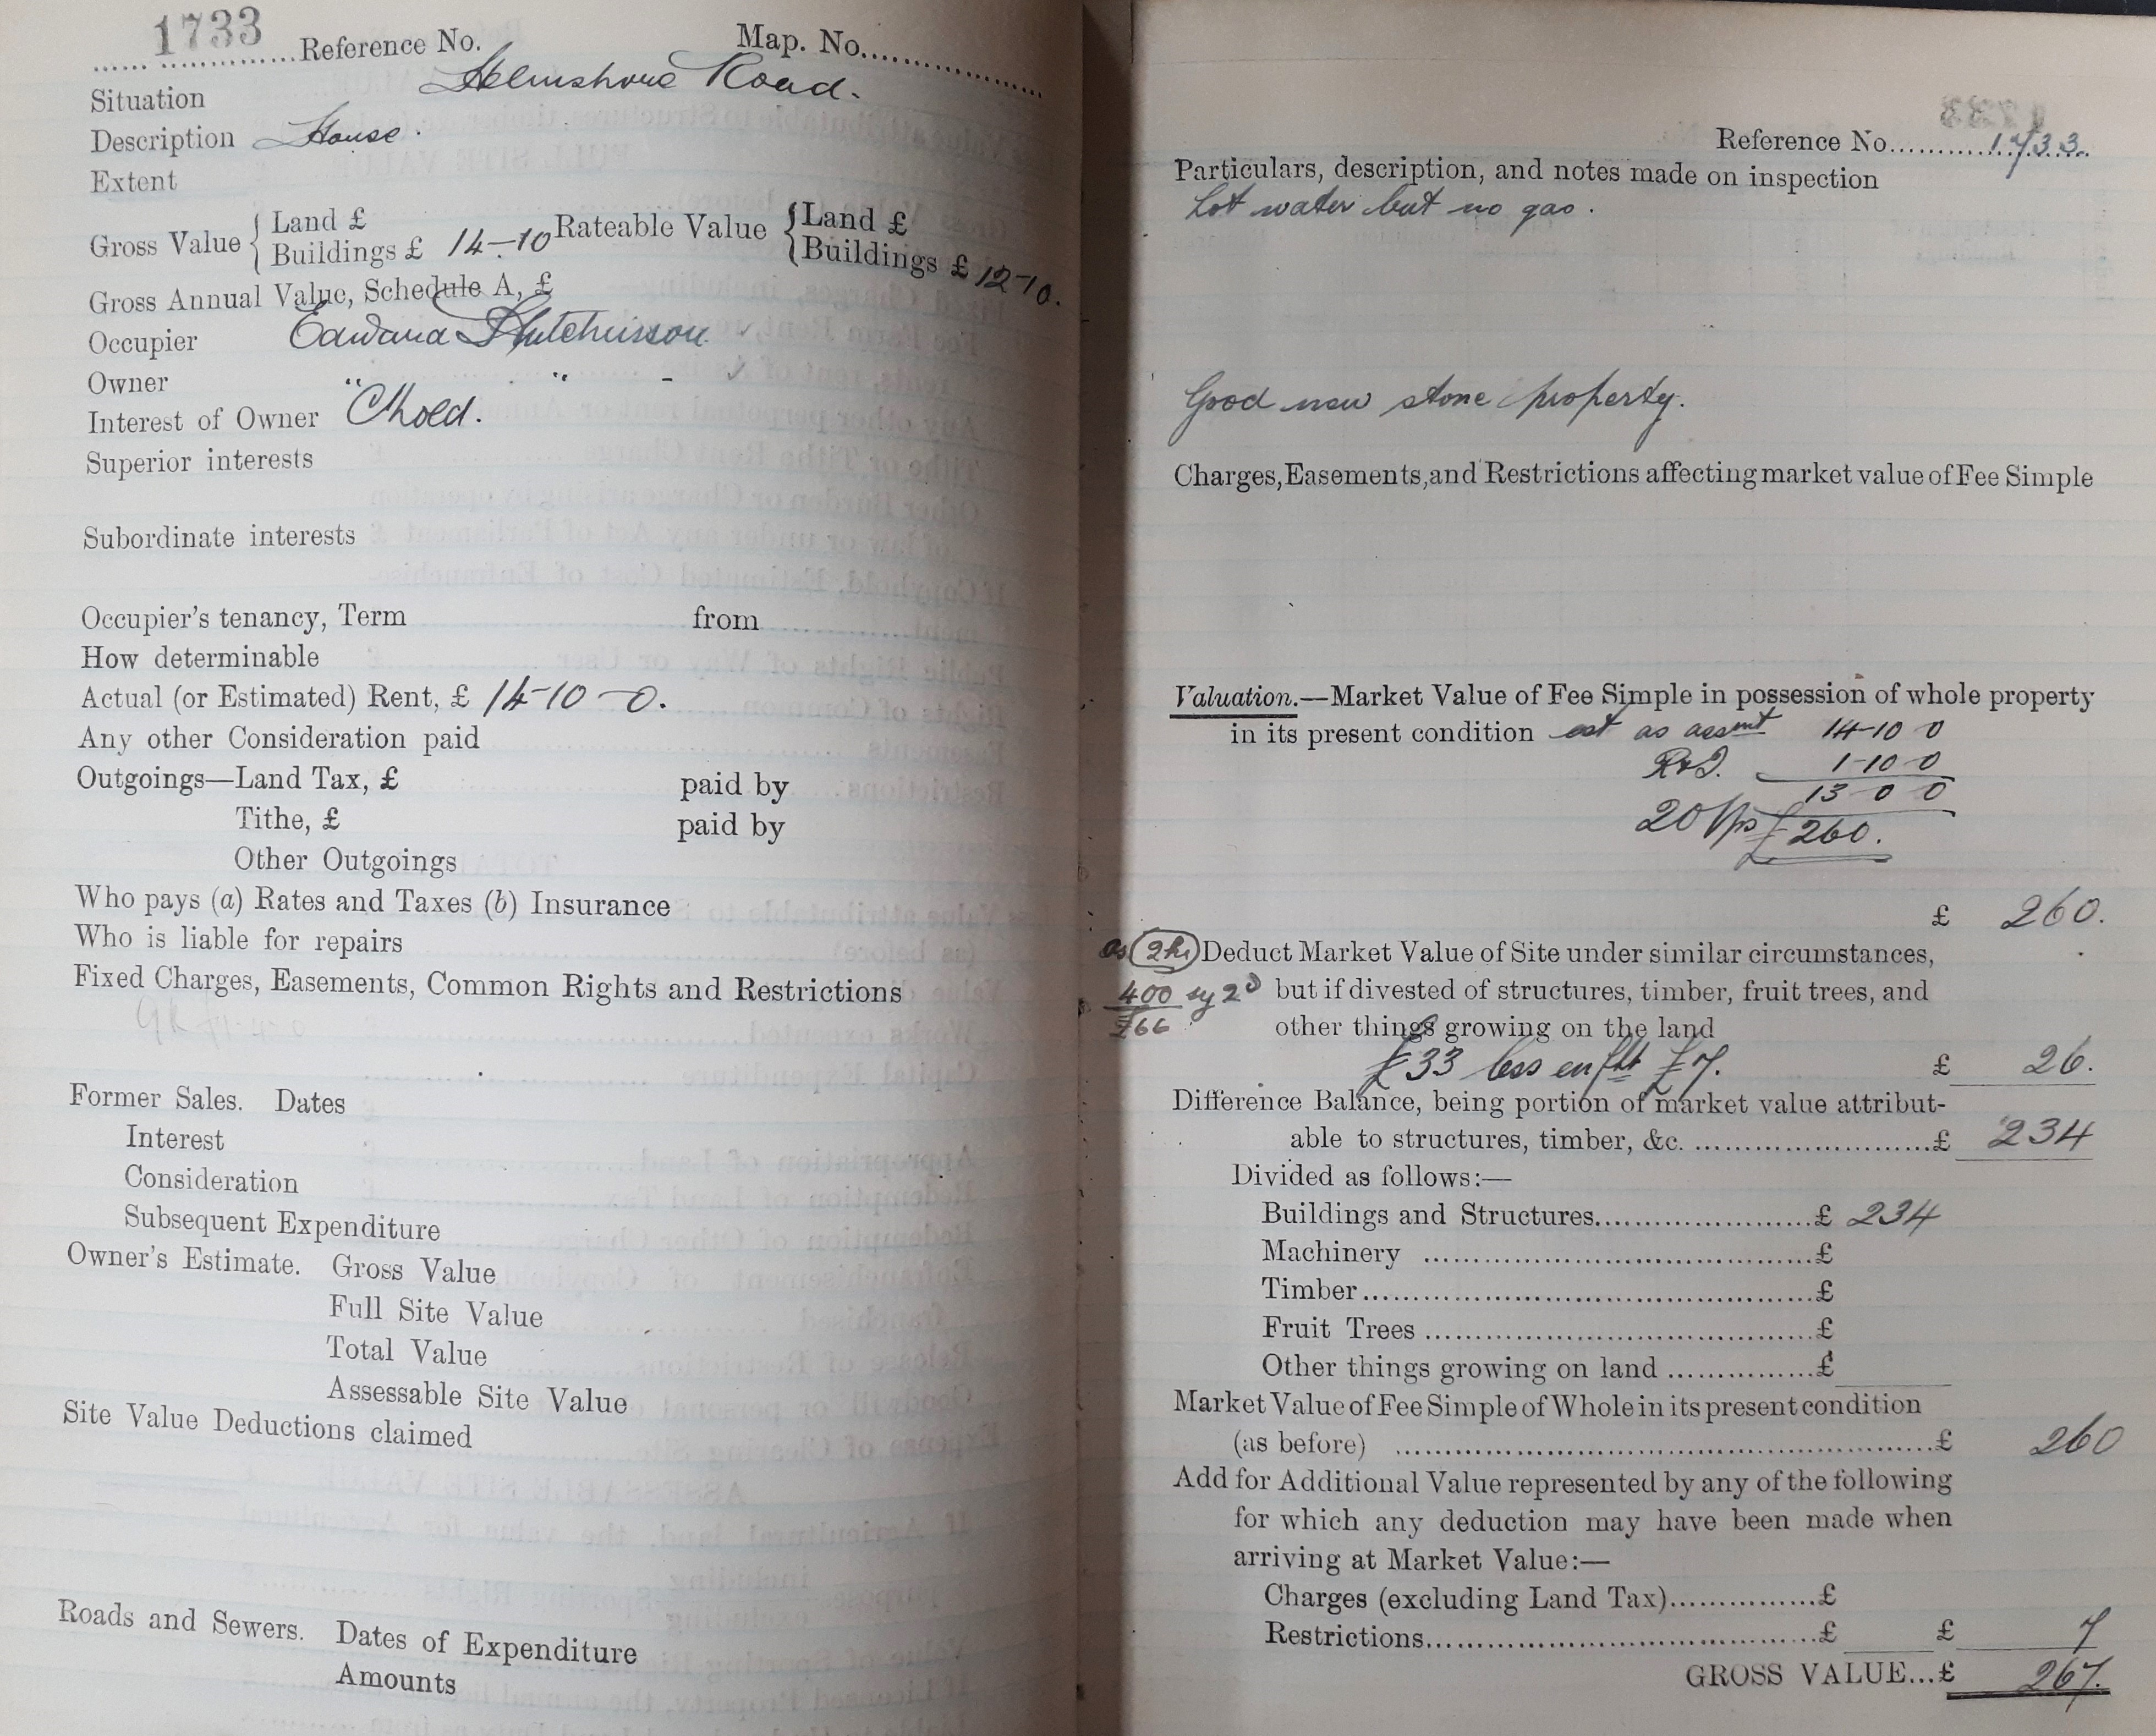 1733 Reference No. Map. No.
Situation Helmshore Road.
Description House.
Extent
Gross Value { Land £
Buildings £ 14-10 Rateable Value { Land £
Buildings £ 12-10.
Gross Annual Value, Schedule A, £
Occupier Edward Hutchinson
Owner " " -
Interest of Owner C'hold.
Superior interests
Subordinate interests
Occupier's tenancy, Term from
How determinable
Actual (or Estimated) Rent, £ 14-10-0.
Any other Consideration paid
Outgoings—Land Tax, £ paid by
Tithe, £ paid by
Other Outgoings
Who pays (a) Rates and Taxes (b) Insurance
Who is liable for repairs
Fixed Charges, Easements, Common Rights and Restrictions
Former Sales. Dates
Interest
Consideration
Subsequent Expenditure
Owner's Estimate. Gross Value
Full Site Value
Total Value
Assessable Site Value
Site Value Deductions claimed
Roads and Sewers. Dates of Expenditure
Amounts
Reference No. 1733.
Particulars, description, and notes made on inspection
Hot water but no gas.
Good new stone property.
Charges, Easements, and Restrictions affecting market value of Fee Simple
Valuation.—Market Value of Fee Simple in possession of whole property
in its present condition est as assmt 14-10 0
R&I. 1-10-0
13 0 0
20 Yps £260.
£ 260.
as 2hs Deduct Market Value of Site under similar circumstances,
400 sy 2D but if divested of structures, timber, fruit trees, and
£66 other things growing on the land
£33 less enfht £7. £ 26.
Difference Balance, being portion of market value attribut-
able to structures, timber, &c. £ 234
Divided as follows:—
Buildings and Structures £ 234
Machinery £
Timber £
Fruit Trees £
Other things growing on land £
Market Value of Fee Simple of Whole in its present condition
(as before) £ 260
Add for Additional Value represented by any of the following
for which any deduction may have been made when
arriving at Market Value:—
Charges (excluding Land Tax) £
Restrictions £ £ 7
GROSS VALUE...£ 267.